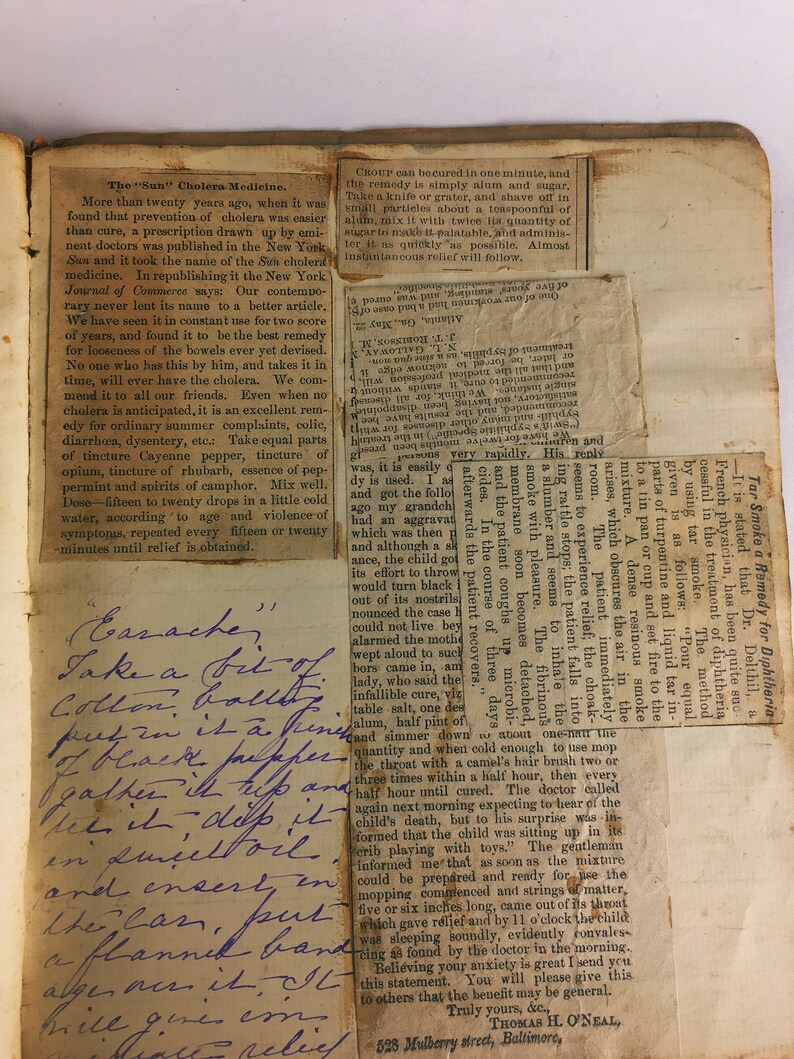 The "Sun" Cholera Medicine.
More than twenty years ago, when it was
found that prevention of cholera was easier
than cure, a prescription drawn up by emi-
nent doctors was published in the New York
Sun and it took the name of the Sun cholera
medicine. In republishing it the New York
Journal of Commerce says: Our contempo-
rary never lent its name to a better article.
We have seen it in constant use for two score
of years, and found it to be the best remedy
for looseness of the bowels ever yet devised.
No one who has this by him, and takes it in
time, will ever have the cholera. We com-
mend it to all our friends. Even when no
cholera is anticipated, it is an excellent rem-
edy for ordinary summer complaints, colic,
diarrhœa, dysentery, etc.: Take equal parts
of tincture Cayenne pepper, tincture of
opium, tincture of rhubarb, essence of pep-
permint and spirits of camphor. Mix well.
Dose—fifteen to twenty drops in a little cold
water, according to age and violence of
symptoms, repeated every fifteen or twenty
minutes until relief is obtained.
"Earache"
Take a bit of
Cotton batting
put in it a pinch
of black pepper
gather it up and
tie it, dip it
in sweet oil,
and insert in
the Ear, put
a flannel band
age over it. It
will give im
relief
CROUP can be cured in one minute, and
the remedy is simply alum and sugar.
Take a knife or grater, and shave off in
small particles about a teaspoonful of
alum, mix it with twice its quantity of
sugar to make it palatable, and adminis-
ter it as quickly as possible. Almost
instantaneous relief will follow.
We have for twelve months been
("Swift's Syphilitic Specific") in the
Syphilis and many other diseases for
recommended, and the results have
satisfactory, not having been disappointed
single instance. We think, for all diseases
recommended to cure, it stands without
and that all the medical profession will,
or later, be forced to acknowledge it
treatment of Syphilis, as a sine qua non.
N. L. GALLOWAY, M.
J. T. ROBINSON, M.
Atlanta, Ga., May 22.
One of our workmen had a bad case of
of five years' standing, and was cured
Tar Smoke a Remedy for Diphtheria
—It is stated that Dr. Delthil, a
French physician, has been quite suc-
cessful in the treatment of diphtheria
by using tar smoke. The method
given is as follows: "Pour equal
parts of turpentine and liquid tar in-
to a tin pan or cup and set fire to the
mixture. A dense resinous smoke
arises, which obscures the air in the
room. The patient immediately
seems to experience relief; the chok-
ing rattle stops; the patient falls into
a slumber and seems to inhale the
smoke with pleasure. The fibrinous
membrane soon becomes detached,
and the patient coughs up microbi-
cides. In the course of three days
afterwards the patient recovers."
persons very rapidly. His reply
was, it is easily
dy is used. I as
and got the follo
ago my grandch
had an aggravat
which was then
and although a sk
ance, the child got
its effort to throw
would turn black
out of its nostrils
nounced the case h
could not live bey
alarmed the mothe
wept aloud to such
bors came in, am
lady, who said the
infallible cure, viz
table salt, one des
alum, half pint of
and simmer down to about one-half the
quantity and when cold enough to use mop
the throat with a camel's hair brush two or
three times within a half hour, then every
half hour until cured. The doctor called
again next morning expecting to hear of the
child's death, but to his surprise was in-
formed that the child was sitting up in its
crib playing with toys." The gentleman
informed me that as soon as the mixture
could be prepared and ready for use the
mopping commenced and strings of matter,
five or six inches long, came out of its throat
which gave relief and by 11 o'clock the child
was sleeping soundly, evidently convales-
cing as found by the doctor in the morning.
Believing your anxiety is great I send you
this statement. You will please give this
to others that the benefit may be general.
Truly yours, &c.,
THOMAS H. O'NEAL,
528 Mulberry street, Baltimore,